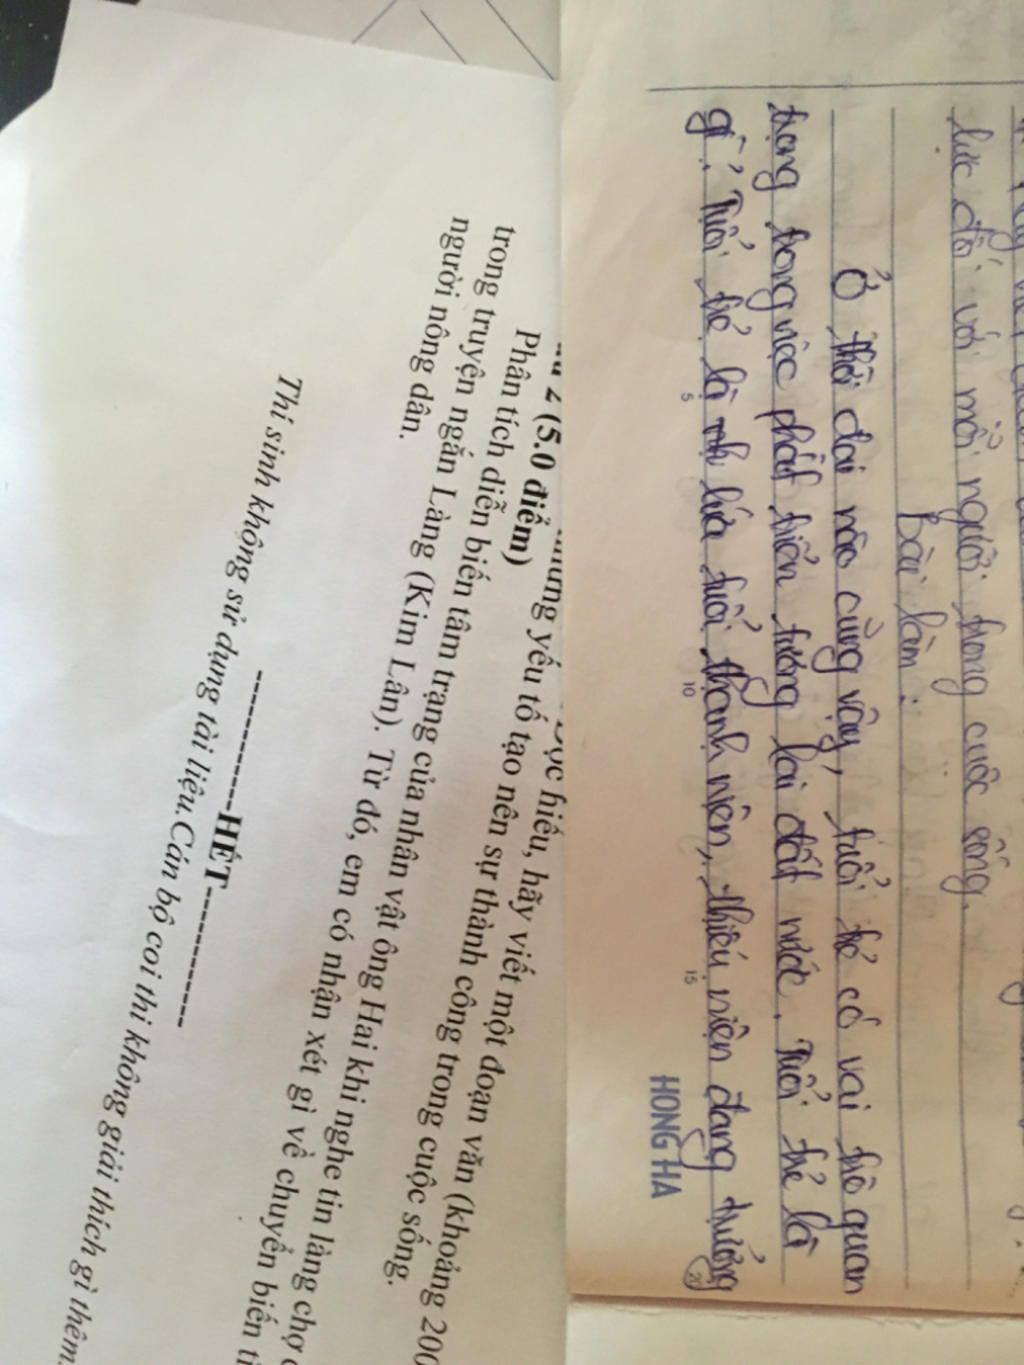 lực đối với mỗi người trong cuộc sống.
Bài làm:
Ở thời đại nào cũng vậy, tuổi trẻ có vai trò quan
trọng trong việc phát triển tương lai đất nước. Tuổi trẻ là
gì? Tuổi trẻ là lứa tuổi thanh niên, thiếu niên đang trưởng
5 10 15 20
HONG HA
hiểu, hãy viết một đoạn văn (khoảng 200
trong những yếu tố tạo nên sự thành công trong cuộc sống.
2 (5.0 điểm)
Phân tích diễn biến tâm trạng của nhân vật ông Hai khi nghe tin làng chợ
trong truyện ngắn Làng (Kim Lân). Từ đó, em có nhận xét gì về chuyển biến
người nông dân.
HẾT
Thí sinh không sử dụng tài liệu. Cán bộ coi thi không giải thích gì thêm.